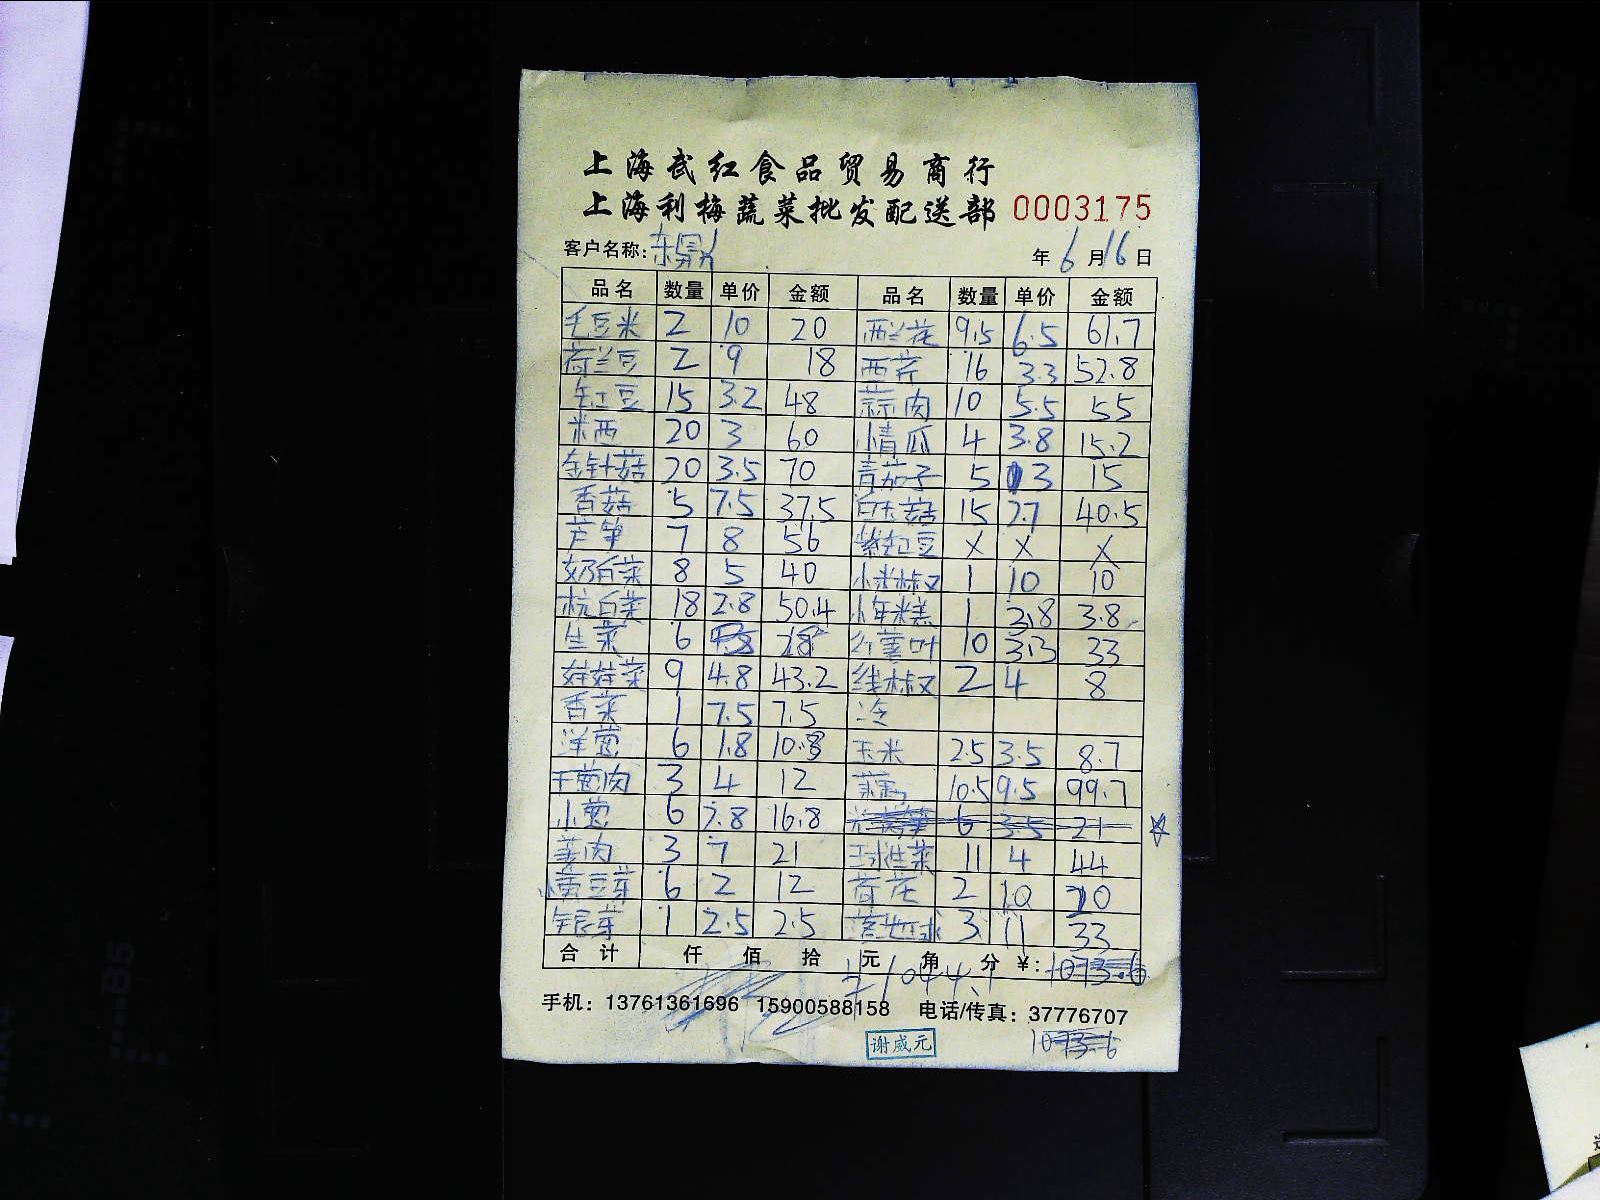 上海武红食品贸易商行
上海利梅蔬菜批发配送部 0003175
客户名称: 东鼎 年 6 月 16 日
品名 数量 单价 金额 品名 数量 单价 金额
毛豆米 2 10 20 西兰花 9.5 6.5 61.7
荷兰豆 2 9 18 西芹 16 3.3 52.8
豆 15 3.2 48 蒜肉 10 5.5 55
米西 20 3 60 小青瓜 4 3.8 15.2
金针菇 20 3.5 70 青茄子 5 3 15
香菇 5 7.5 37.5 白玉菇 15 2.7 40.5
芦笋 7 8 56 豆 X X X
奶白菜 8 5 40 小米椒 1 10 10
杭白菜 18 2.8 50.4 小年糕 1 3.8 3.8
生菜 6 红薯叶 10 3.3 33
娃娃菜 9 4.8 43.2 线椒 2 4 8
香菜 1 7.5 7.5 冷
洋葱 6 1.8 10.8 玉米 2.5 3.5 8.7
干葱肉 3 4 12 10.5 9.5 99.7
小葱 6 2.8 16.8 6 3.5 21
姜肉 3 7 21 球生菜 11 4 44
黄豆芽 6 2 12 荷花 2 10 20
银芽 1 2.5 2.5 球 3 11 33
合计 仟 佰 拾 元 角 分 ¥: 1073.6
1044.1
手机: 13761361696 15900588158 电话/传真: 37776707
谢威元 1073.6